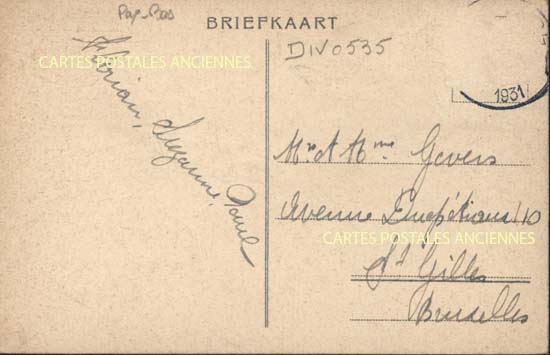 Pays-Bas
BRIEFKAART
DIV0535
CARTES POSTALES ANCIENNES
Adrian, Suzanne, Paul
1931
Mr et Mme Gevers
Avenue 110
CARTES POSTALES ANCIENNES
St Gilles
Bruxelles